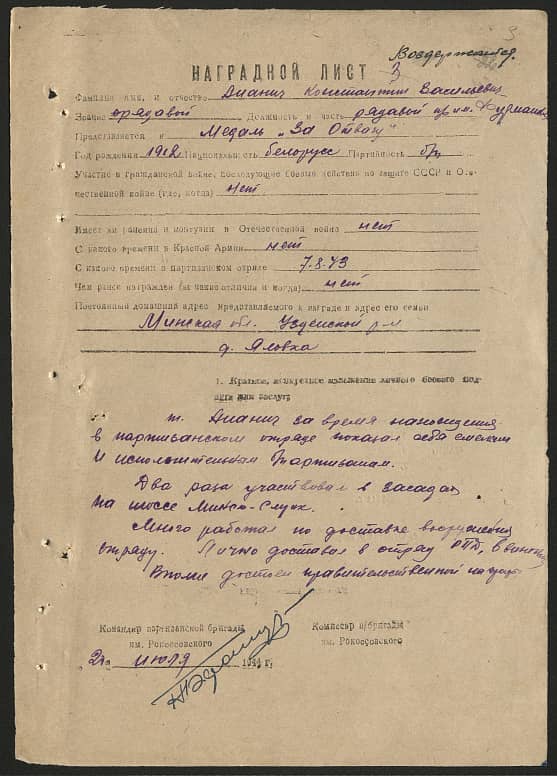 3
Воздержаться
НАГРАДНОЙ ЛИСТ 3
Фамилия имя, и отчество Дианич Константин Васильевич
Звание рядавой Должность и часть рядавой отр. им. Фурманова
Представляется к Медаль „За Отвагу"
Год рождения 1912 Национальность белорусс Партийность б/п
Участие в гражданской войне, последующие боевые действия по защите СССР и Оте-
чественной войне (где, когда) нет
Имеет ли ранения и контузии в Отечественной войне нет
С какого времени в Красной Армии нет
С какого времени в партизанском отряде 7.8.43
Чем ранее награжден (за какие отличия и когда) нет
Постоянный домашний адрес представляемого к награде и адрес его семьи
Минская обл. Узденский р-н
д. Яловка
1. Краткое, конкретное изложение личного боевого под-
вига или заслуг:
т. Дианич за время нахождения
в партизанском отряде показал себя смелым
и исполнительным партизаном.
Два раза участвовал в засадах
на шоссе Минск-Слуцк.
Много работал по доставке вооружения
отряду. Лично доставил в отряд РПД, 6 винтовок
Вполне достоен правительственной награды
Командир партизанской бригады Комиссар п/бригады
им. Рокоссовского им. Рокоссовского
июля 1944 г